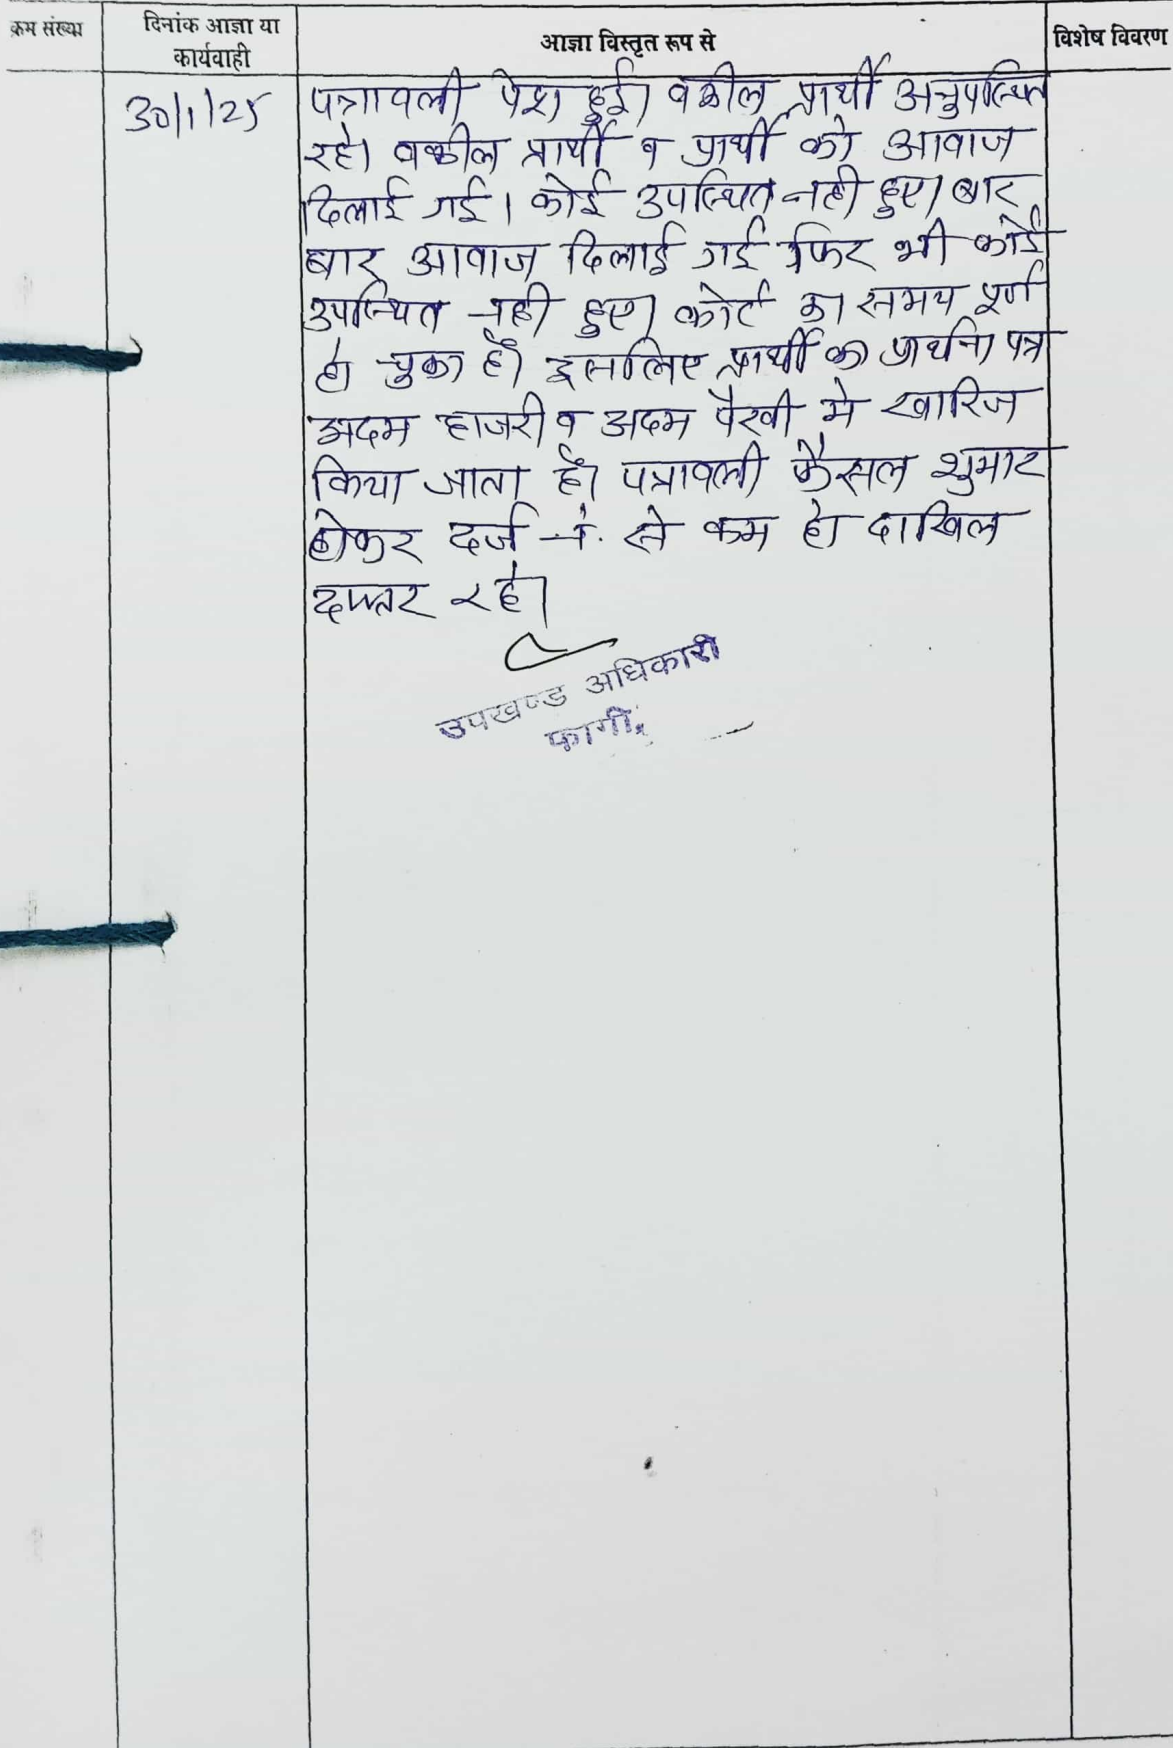 क्रम संख्या
दिनांक आज्ञा या
कार्यवाही
आज्ञा विस्तृत रूप से
विशेष विवरण
30/1/25
पत्रावली पेश हुई। वकील प्रार्थी अनुपस्थित
रहे। वकील प्रार्थी व प्रार्थी को आवाज
दिलाई गई। कोई उपस्थित नही हुए। बार
बार आवाज दिलाई गई फिर भी कोई
उपस्थित नही हुए। कोर्ट का समय पूर्ण
हो चुका है। इसलिए प्रार्थी का प्रार्थना पत्र
अदम हाजरी व अदम पैरवी मे खारिज
किया जाता है। पत्रावली फैसल शुमार
होकर दर्ज नं. से कम हो दाखिल
दफ्तर रहे।
उपखण्ड अधिकारी
फागी